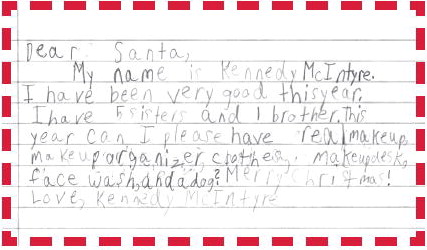 Dear Santa,
My name is Kennedy McIntyre.
I have been very good this year.
I have 5 sisters and 1 brother. This
year can I please have real makeup,
makeup organizer, clothes, makeup desk,
face wash, and a dog? Merry Christmas!
Love, Kennedy McIntyre